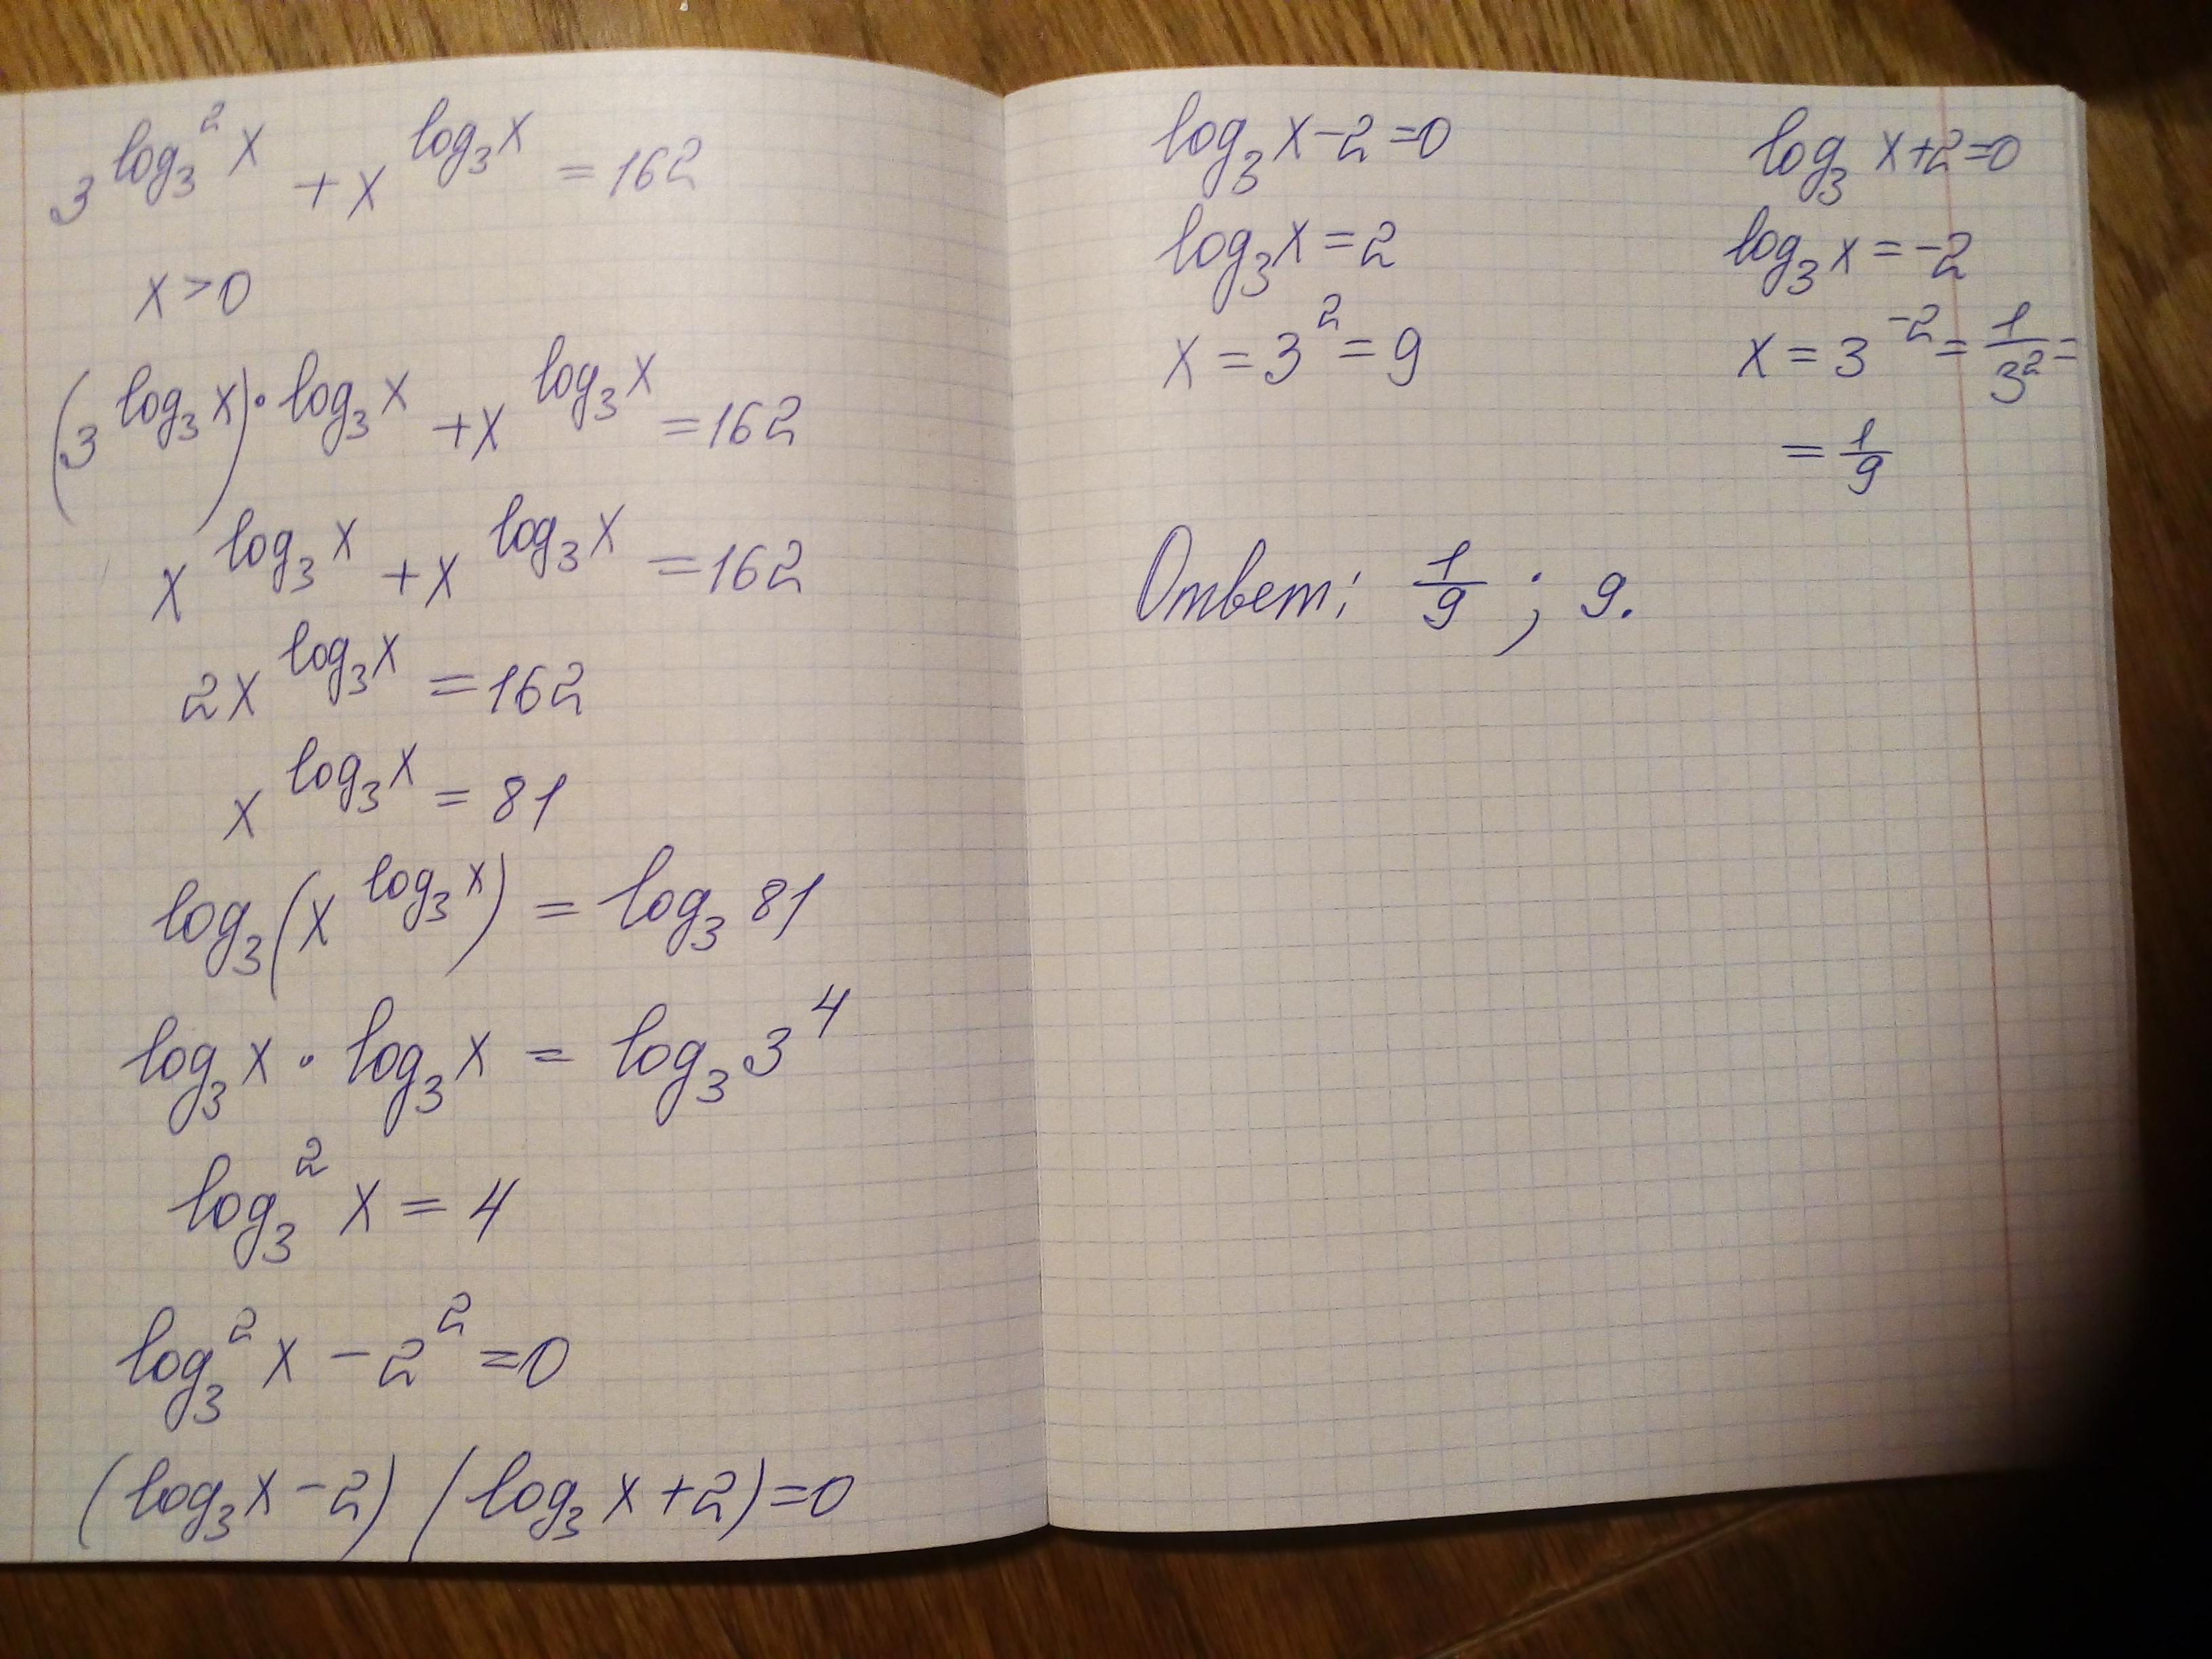 3^{log_3^2 x} + x^{log_3 x} = 162
x > 0
(3^{log_3 x})^{· log_3 x} + x^{log_3 x} = 162
x^{log_3 x} + x^{log_3 x} = 162
2x^{log_3 x} = 162
x^{log_3 x} = 81
log_3 (x^{log_3 x}) = log_3 81
log_3 x · log_3 x = log_3 3^4
log_3^2 x = 4
log_3^2 x - 2^2 = 0
(log_3 x - 2) (log_3 x + 2) = 0
log_3 x - 2 = 0
log_3 x = 2
x = 3^2 = 9
log_3 x + 2 = 0
log_3 x = -2
x = 3^{-2} = \frac{1}{3^2} =
= \frac{1}{9}
Ответ: \frac{1}{9} ; 9.